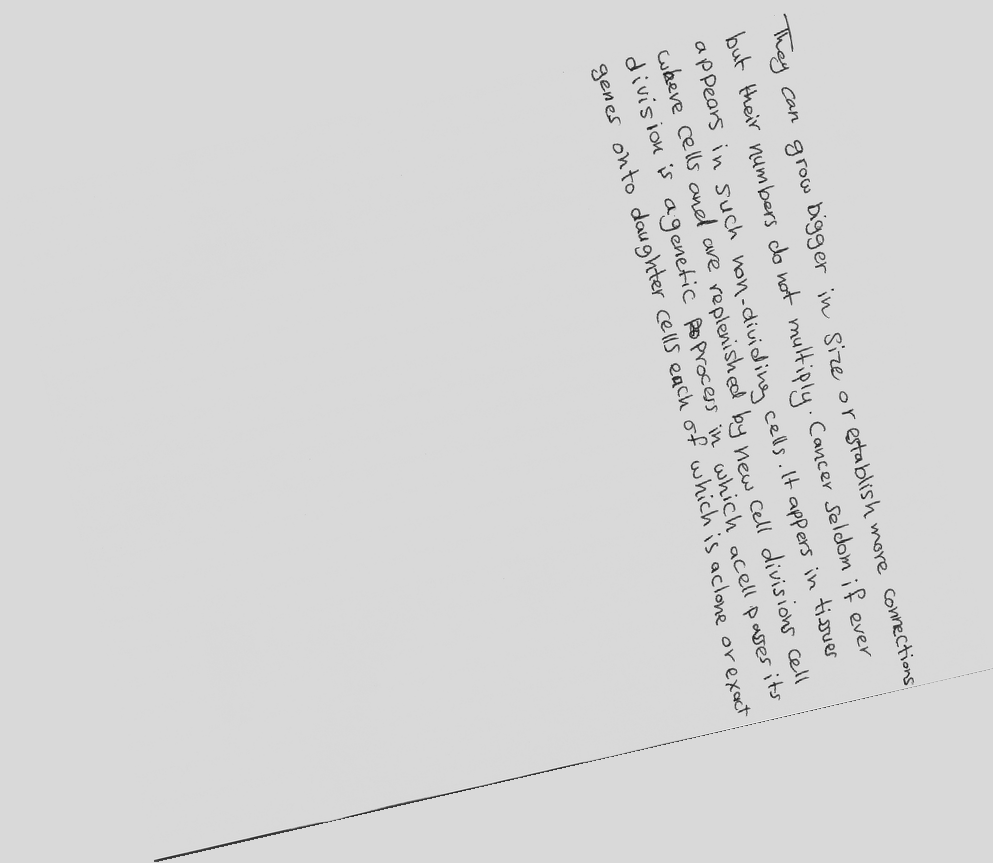 They can grow bigger in size or establish more connections
but their numbers do not multiply. Cancer seldom if ever
appears in such non-dividing cells. It appers in tissues
where cells and are replenished by new cell divisions cell
division is a genetic process in which a cell passes its
genes onto daughter cells each of which is a clone or exact